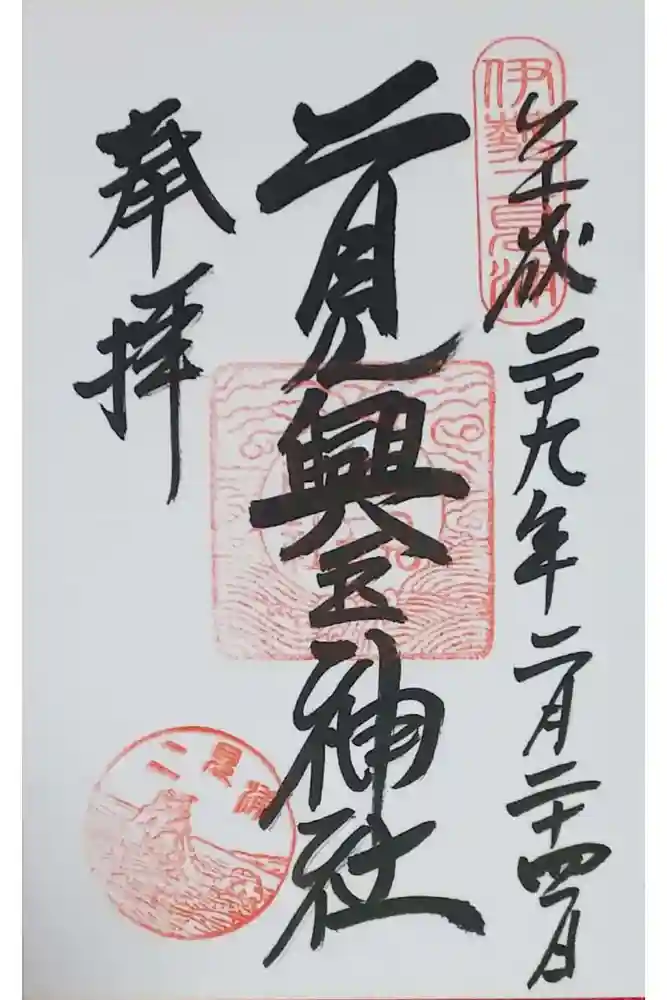 伊勢二見浦
平成二十九年二月二十四日
二見興玉神社
奉拝
二見浦